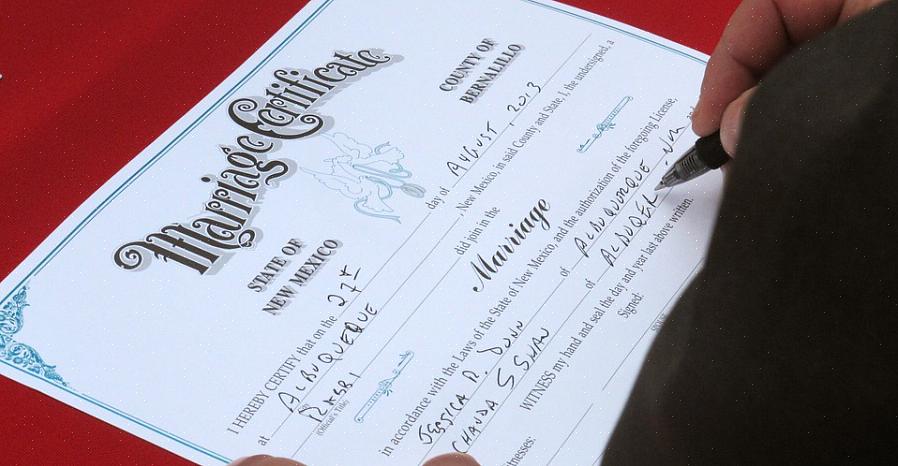 Marriage Certificate
STATE OF
NEW MEXICO
COUNTY OF
BERNALILLO
I HEREBY CERTIFY that on the 27th day of AUGUST, 2013
at ALBUQUEQUE, New Mexico, in said County and State, I, the undersigned, a
RABBI did join in the
(Official's Title)
Marriage
in accordance with the Laws of the State of New Mexico, and the authorization of the foregoing License,
JESSICA R. DUNN of ALBUQUORQUE, NM
of ALBUQER
WITNESS my hand and seal the day and year last above written.
Signed:
tnesses: